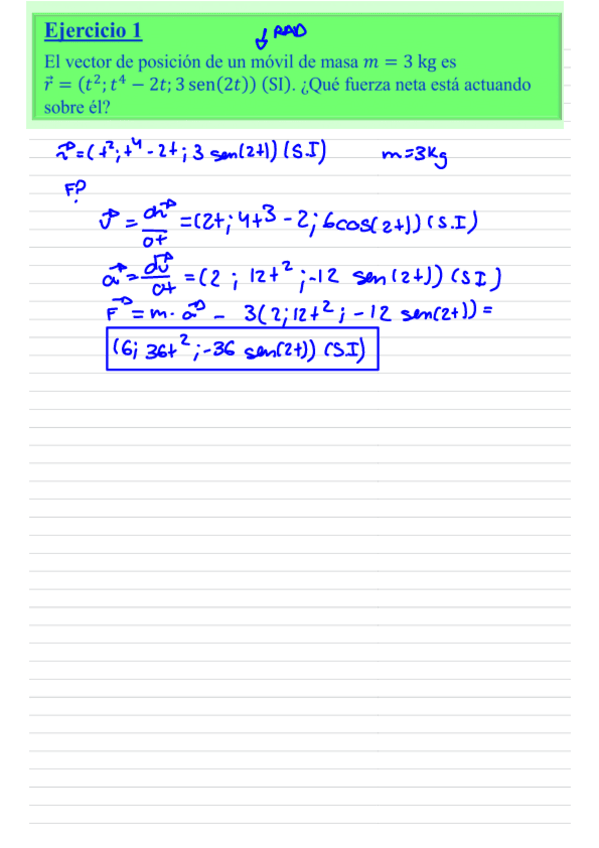 Ejercicio 1
↓ RAD
El vector de posición de un móvil de masa m = 3 kg es
r⃗ = (t²; t⁴ − 2t; 3 sen(2t)) (SI). ¿Qué fuerza neta está actuando
sobre él?
r⃗ = (t²; t⁴ - 2t; 3 sen(2t)) (S.I) m=3kg
F?
v⃗ = dr⃗/dt = (2t; 4t³ - 2; 6cos(2t)) (S.I)
a⃗ = dv⃗/dt = (2 ; 12t² ; -12 sen(2t)) (SI)
F⃗ = m · a⃗ - 3(2; 12t² ; -12 sen(2t)) =
(6; 36t² ; -36 sen(2t)) (S.I)